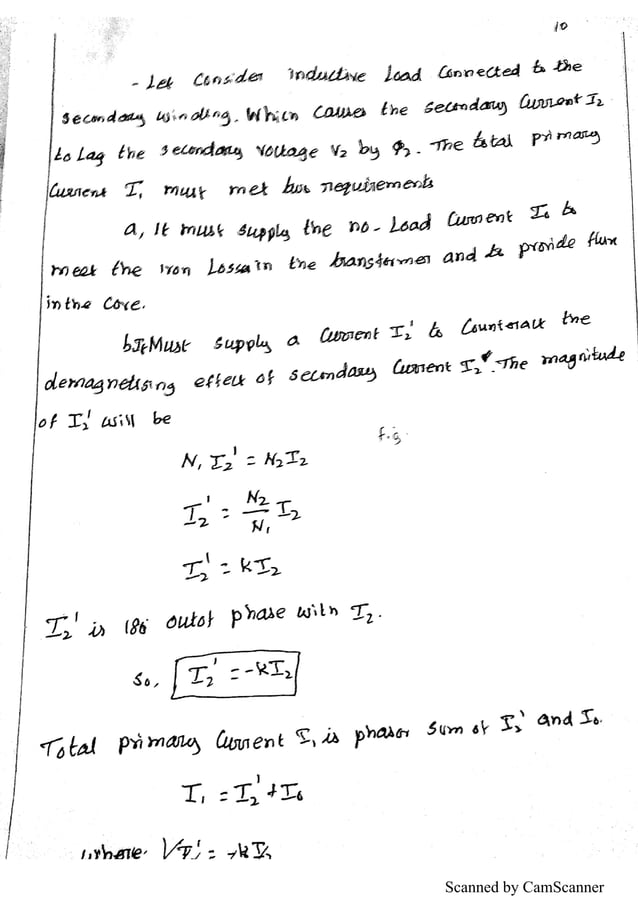 10
- Let Consider inductive Load Connected to the
secondary winding. Which causes the secondary Current I₂
to Lag the secondary voltage V₂ by φ₂. The total primary
Current I₁ must met two requirements
a, It must supply the no-Load Current I₀ to
meet the Iron Loss in the transformer and to provide flux
in the Core.
b, It Must supply a Current I₂' to Counteract the
demagnetising effect of secondary Current I₂. The magnitude
of I₂' will be
fig.
N₁ I₂' = N₂ I₂
I₂' = N₂/N₁ I₂
I₂' = kI₂
I₂' is 180° out of phase with I₂.
So, I₂' = -kI₂
Total primary Current I₁ is phasor sum of I₂' and I₀.
I₁ = I₂' + I₀
where
Scanned by CamScanner